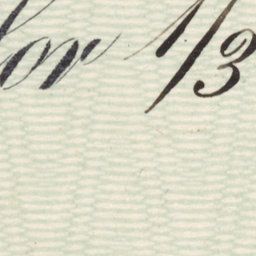 for 1/3